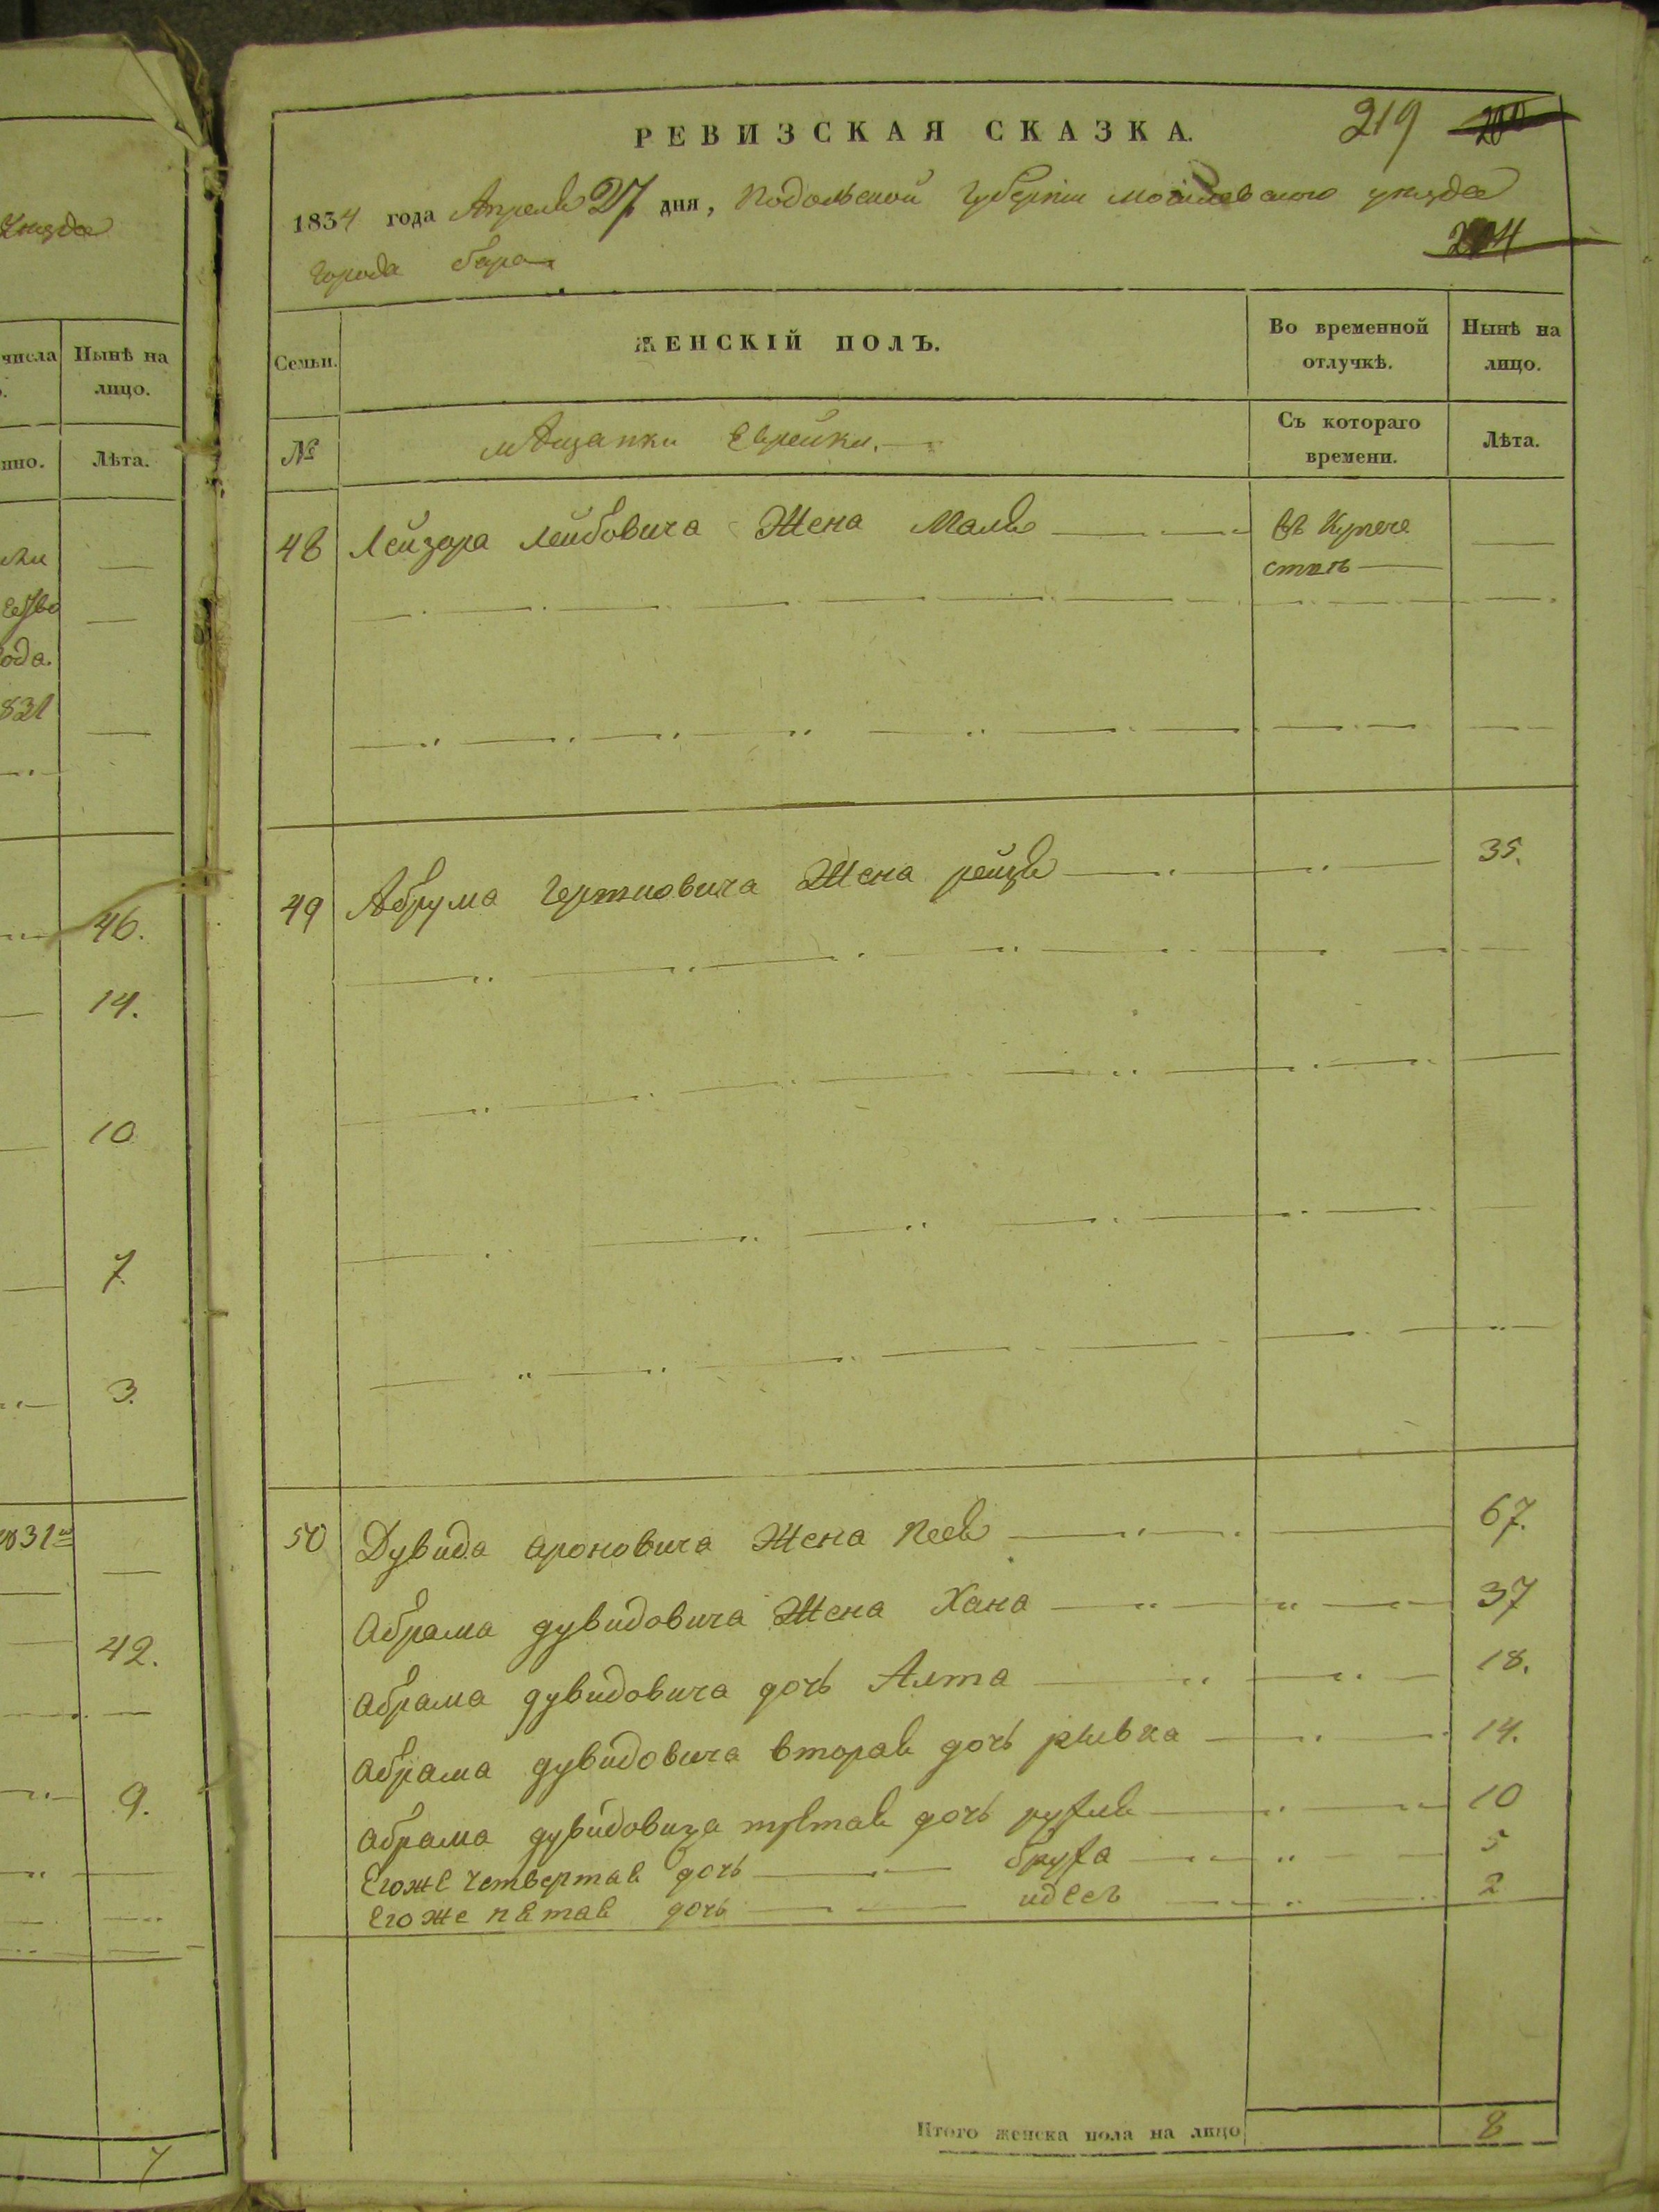 РЕВИЗСКАЯ СКАЗКА.
219
1834 года Апреля 27 дня, Подольской Губернии могилевского уезда
города бара
Семьи.
ЖЕНСКІЙ ПОЛЪ.
Во временной отлучкѣ.
Нынѣ на лицо.
№
мѣщанки Еврейки.
Съ котораго времени.
Лѣта.
48 Лейзора Лейбовича Жена Маля въ Купече
ствѣ
49 Абрума Гертковича Жена рейзя 35.
50 Дувида ароновича Жена Пея 67.
абрама дувидовича Жена Хана 37
абрама дувидовича дочь Алта 18.
абрама дувидовича вторая дочь рывка 14.
абрама дувидовича третая дочь рухля 10
Егоже четвертая дочь бруха 5
Егоже пятая дочь идесъ 2
Итого женска пола на лицо 8
уезда
числа
Нынѣ на лицо.
Лѣта.
ода.
831
46.
14.
10
7.
3.
42.
9.
7